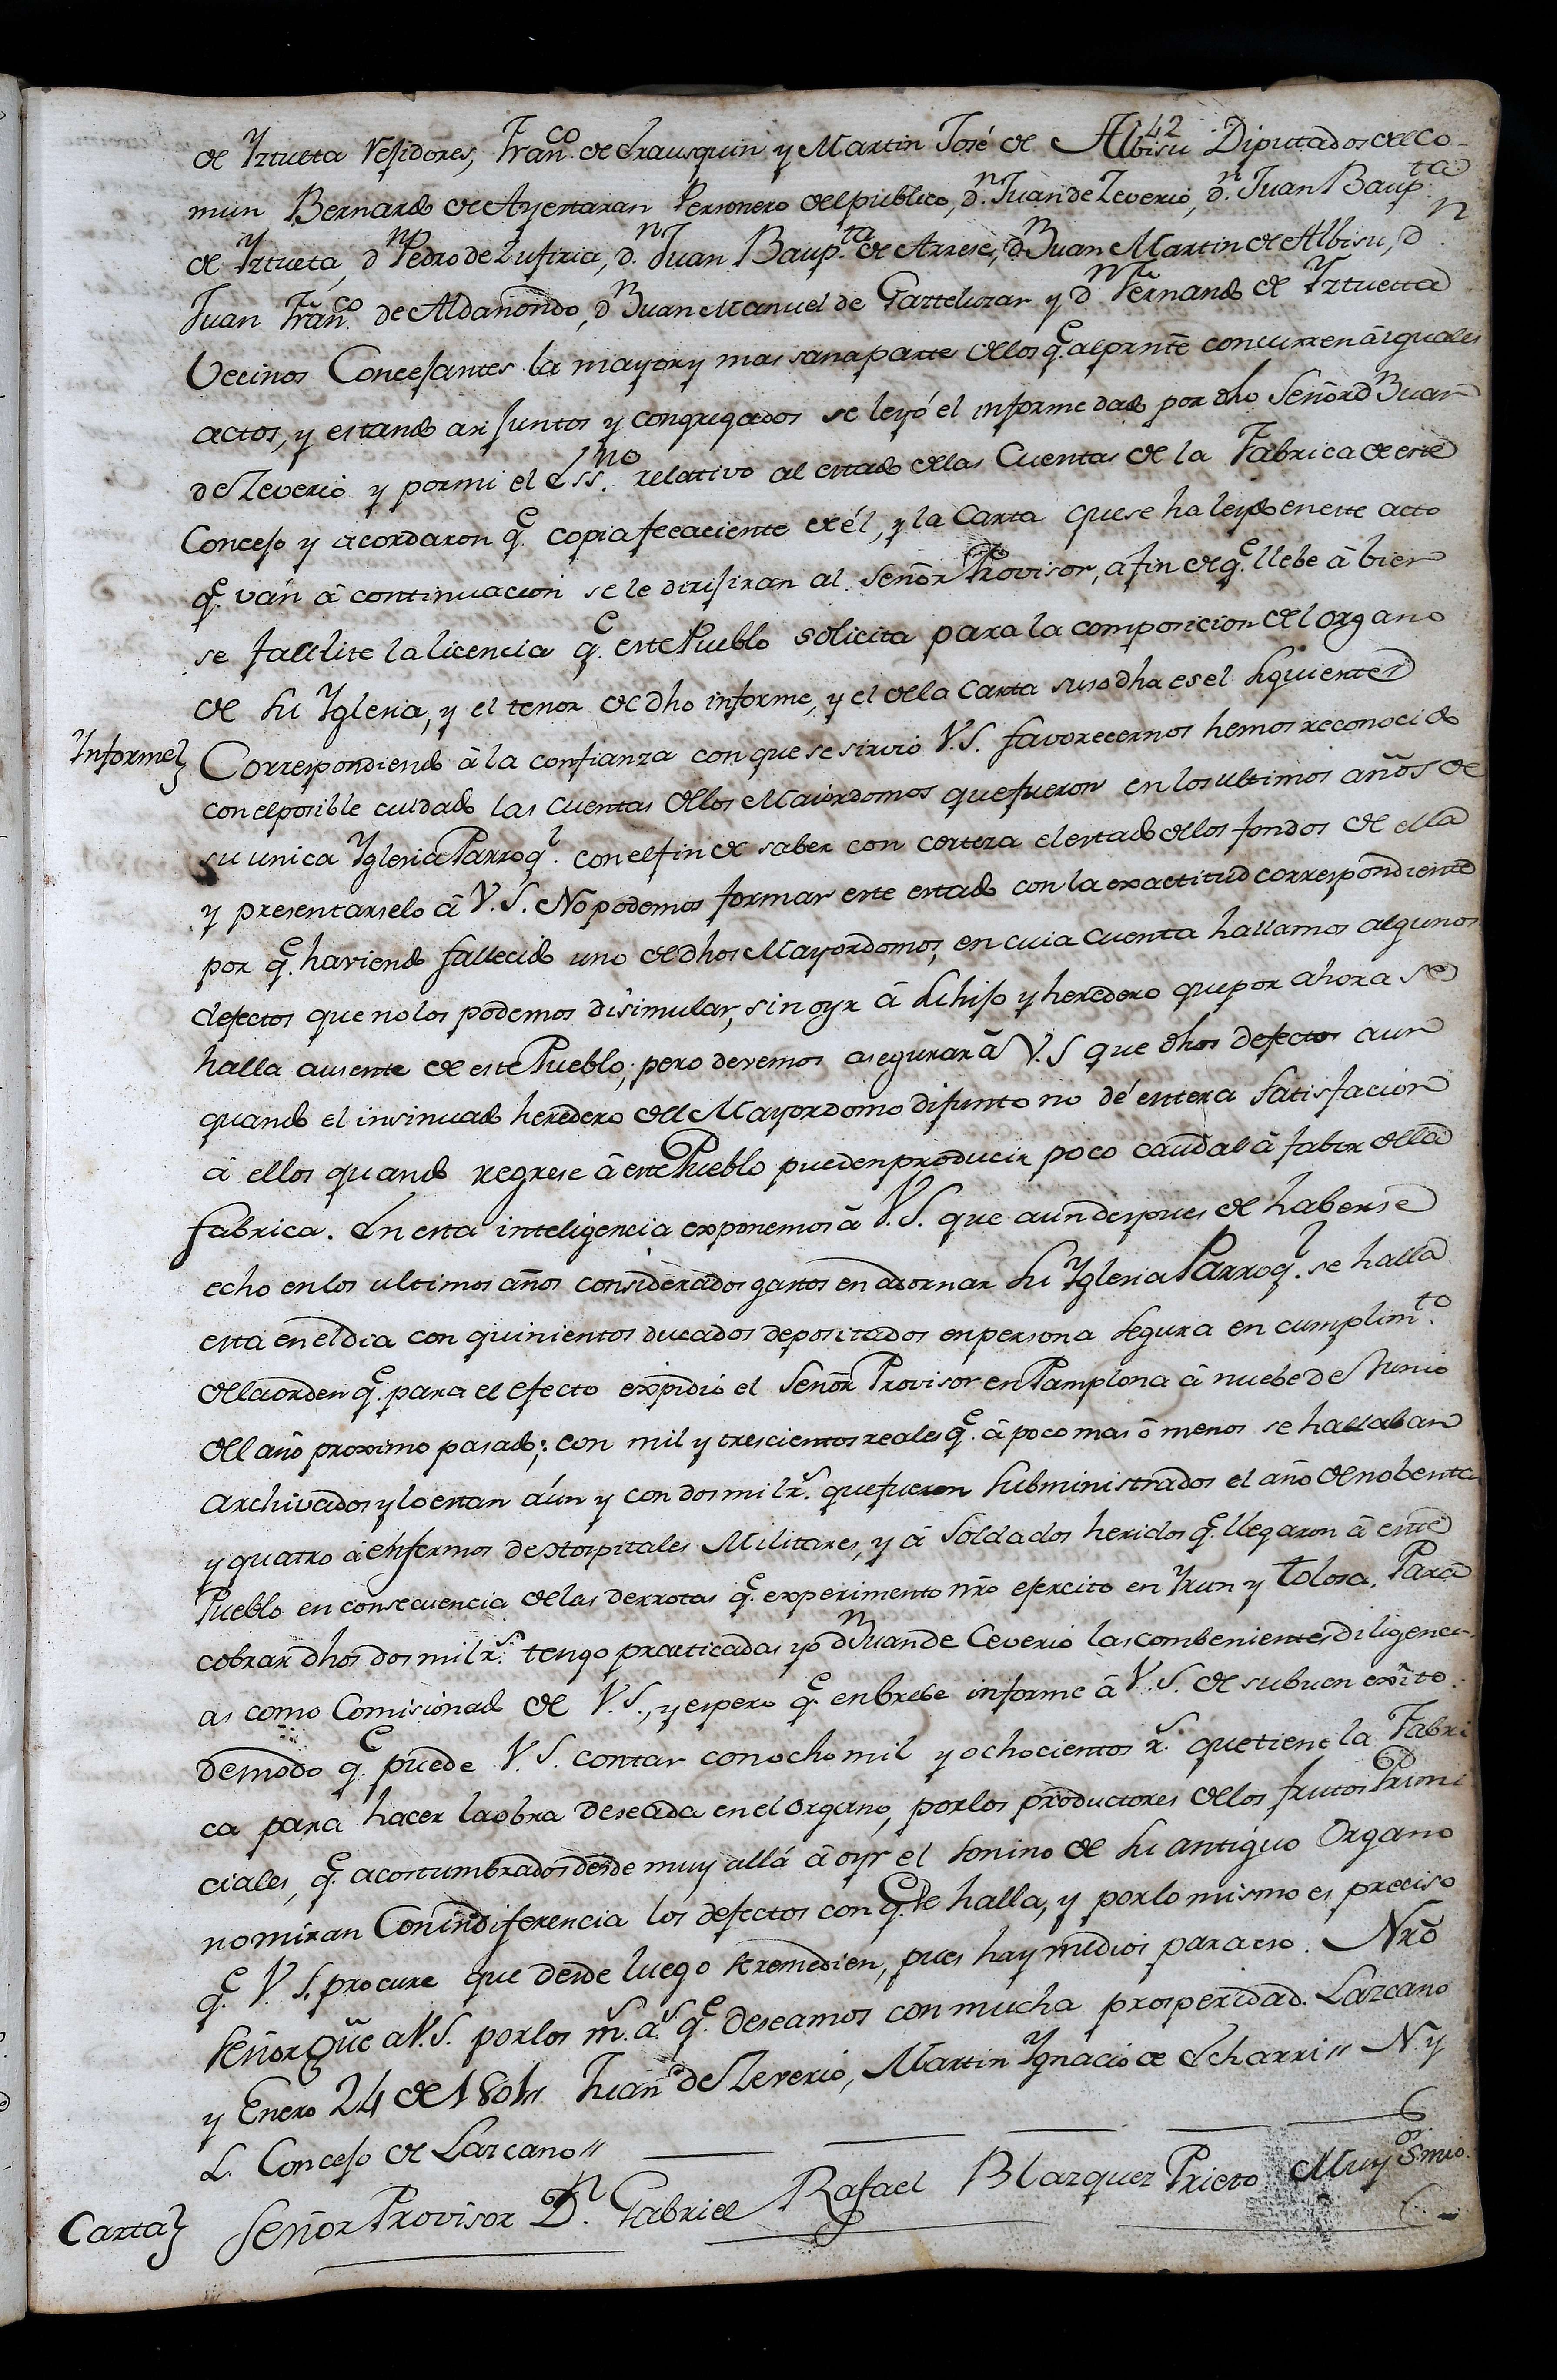 42
de Yztueta Rejidores, Fran.co de Erausquin y Martin José de Albisu Diputados del Co-
mun Bernardo de Ayestaran Personero del publico, d.n Juan de Zeverio, d.n Juan Baup.ta
de Yztueta, d.n Pedro de Zufiria, d.n Juan Baup.ta de Arrese, d.n Juan Martin de Albisu, d.n
Juan Fran.co de Aldañondo, d.n Juan Manuel de Gazteluzar y d.n Fernando de Yztuetta
Vecinos Concejantes la mayor y mas sana parte de los q.e al prnte concurren â iguales
actos, y estando asi juntos y congregados se leyó el informe dado por dho Señor d.n Juan
de Zeverio y por mi el Ess.no relativo al estado de las Cuentas de la Fabrica de este
Concejo y acordaron q.e copia feeaciente de él, y la Carta que se ha leydo en este acto
q.e ván â continuacion se le dirijiran al Señor Provisor, a fin de q.e llebe â bien
se facilite la licencia q.e este Pueblo solicita para la composicion del organo
de su Yglesia, y el tenor de dho informe, y el de la Carta susodha es el siguiente
Informe Correspondiendo â la confianza con que se sirvió V.S. favorecernos hemos reconocido
con el posible cuidado las cuentas de los Maiordomos que fueron en los ultimos años de
su unica Yglesia Parroq.l con el fin de saber con certeza el estado de los fondos de ella
y presentarselo â V.S. No podemos formar este estado con la exactitud correspondiente
por q.e haviendo fallecido uno de dhos Mayordomos, en cuia cuenta hallamos algunos
defectos que no los podemos disimular, sin oyr â su hijo y heredero que por ahora se
halla ausente de este Pueblo; pero devemos asegurar â V.S que dhos defectos aun
quando el insinuado heredero del Mayordomo difunto no dé entera satisfacion
â ellos quando regrese â este Pueblo pueden producir poco caudal â fabor de la
fabrica. En esta inteligencia exponemos â V.S. que aun despues de haberse
echo en los ultimos años considerados gastos en adornar su Yglesia Parroq.l se halla
esta en el dia con quinientos ducados depositados en persona segura en cumplim.to
de la orden q.e para el efecto expidió el Señor Provisor en Pamplona â nuebe de Junio
del año proximo pasado; con mil y trescientos reales q.e â poco mas ô menos se hallaban
archivados y lo estan aún y con dos mil r.s que fueron subministrados el año de nobenta
y quatro â enfermos de Hospitales Militares, y â Soldados heridos q.e llegaron â este
Pueblo en consecuencia de las derrotas q.e experimento nro ejercito en Yrun y Tolosa. Para
cobrar dhos dos mil r.s tengo practicadas yo d.n Juan de Ceverio las combenientes diligenci-
as como Comisionado de V.S., y espero q.e en brebe informe â V.S. de su buen exito.
de modo q.e puede V.S. contar con ocho mil y ochocientos r.s que tiene la Fabri
ca para hacer la obra deseada en el organo, por los productores de los frutos Primi
ciales, q.e acostumbrados desde muy allá â oyr el sonino de su antiguo Organo
no miran con indiferencia los defectos con q.e se halla, y por lo mismo es preciso
q.e V.S. procure que desde luego se remedien, pues hay medios para eso. Nro
Señor gue a V.S. por los m.s a.s q.e deseamos con mucha prosperidad. Lazcano
y Enero 24 de 1801,, Juan de Zeverio, Martin Ygnacio de Echarri,, N. y
L. Concejo de Lazcano,,
Carta Señor Provisor D.n Gabriel Rafael Blazquez Prieto Muy S.or mio.